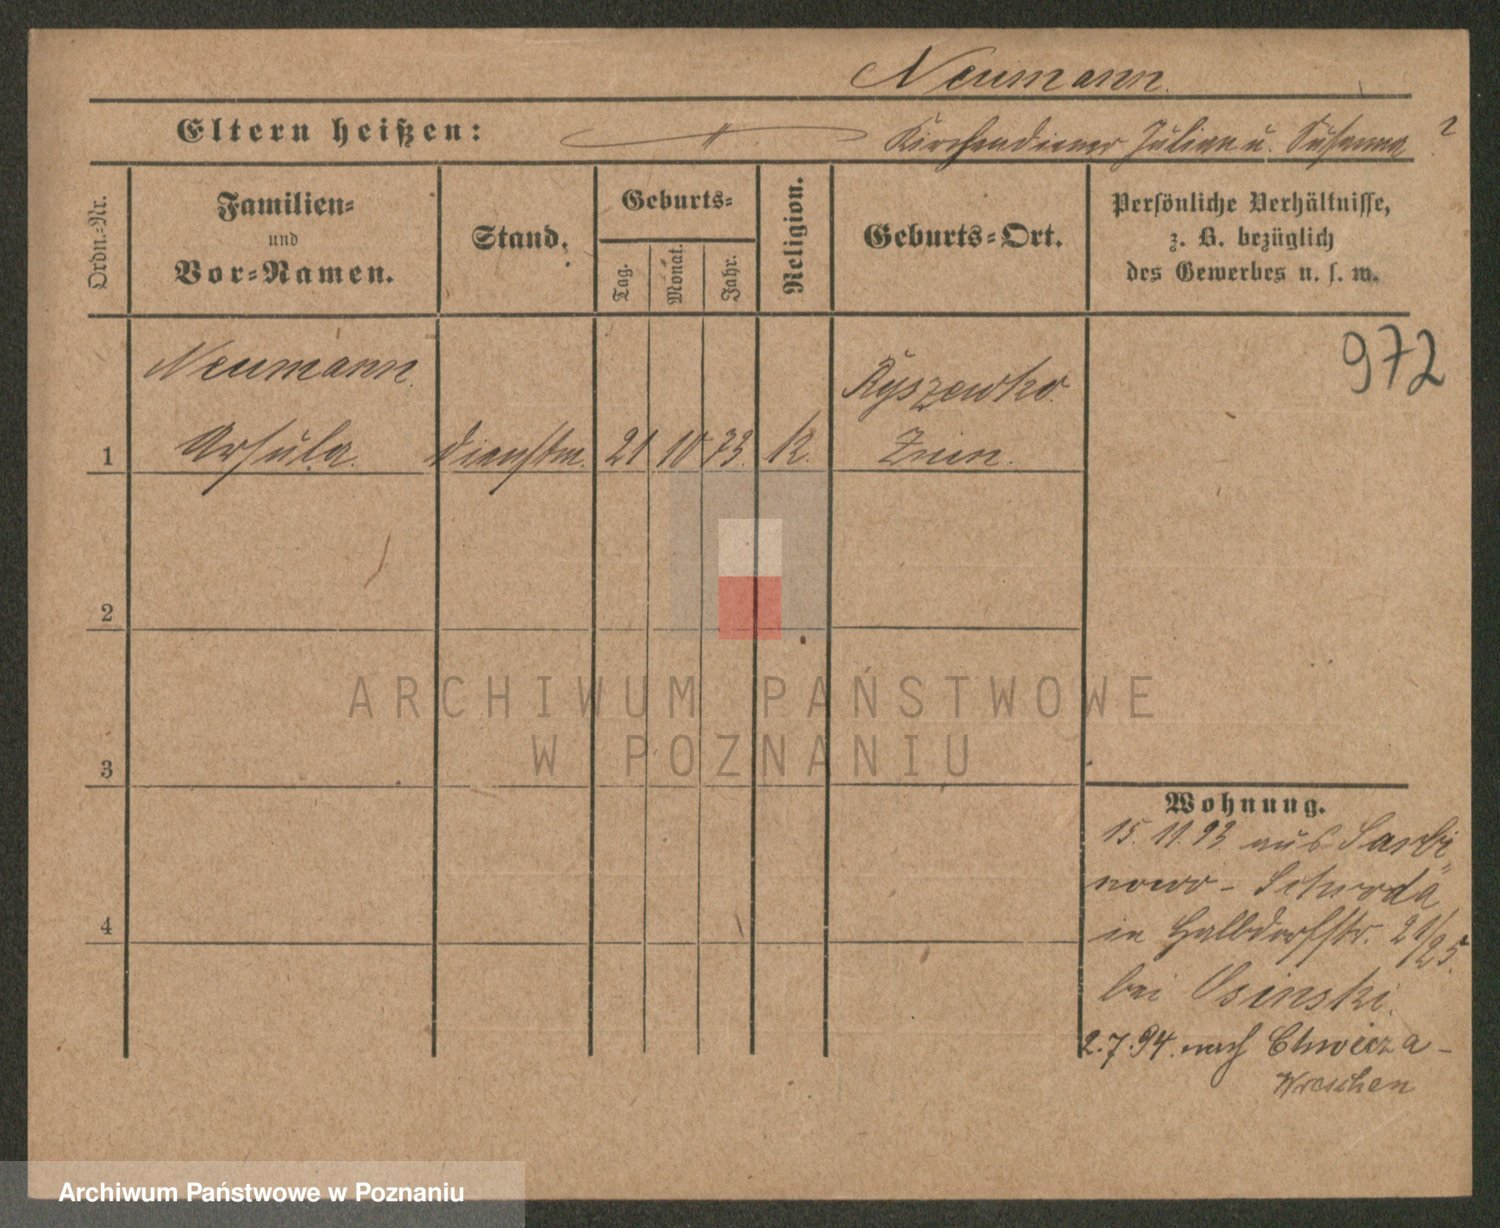 Neumann.
Eltern heißen: Kirchendiener Julian u. Susanna ?
Ordn.-Nr.
Familien-
und
Vor-Namen.
Stand.
Geburts-
Tag.
Monat.
Jahr.
Religion.
Geburts-Ort.
Persönliche Verhältnisse,
z. B. bezüglich
des Gewerbes u. s. w.
972
Neumann.
Ryszewko.
1 Ursula. Dienstm. 21 10 73. K. Znin.
2
3
4
Wohnung.
15. 11. 93. aus Sarbi
nowo - Schroda
in Halbdorfstr. 21/25.
bei Osinski.
2.7.94. nach Chwicza-
Wreschen
ARCHIWUM PAŃSTWOWE
W POZNANIU
Archiwum Państwowe w Poznaniu